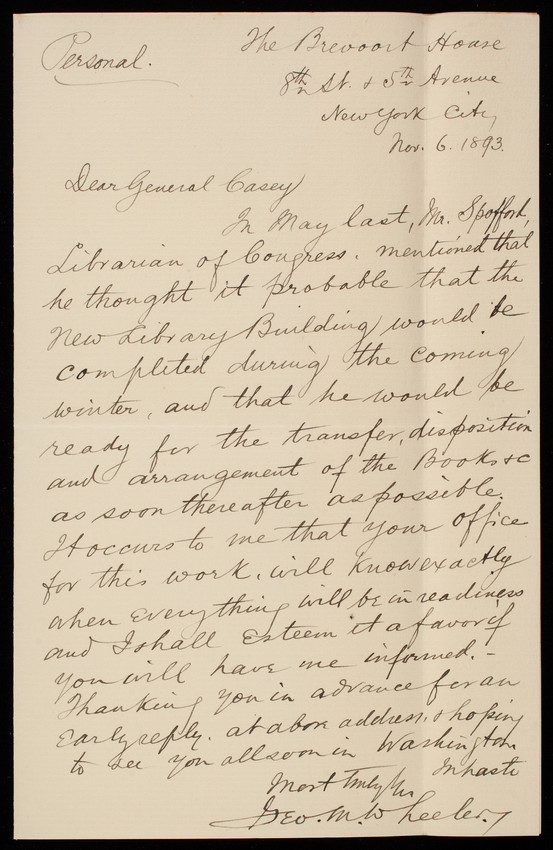 Personal.
The Brevoort House
8th St. & 5th Avenue
New York City
Nov. 6. 1893.
Dear General Casey
In May last, Mr. Spofford,
Librarian of Congress. mentioned that
he thought it probable that the
New Library Building would be
completed during the coming
winter, and that he would be
ready for the transfer, disposition
and arrangement of the Books &c
as soon thereafter as possible.
It occurs to me that your office
for this work. will know exactly
when everything will be in readiness
and I shall esteem it a favor if
you will have me informed. -
Thanking you in advance for an
early reply. at above address, & hoping
to see you all soon in Washington
In haste
Most truly Yrs
Geo. M. Wheeler.